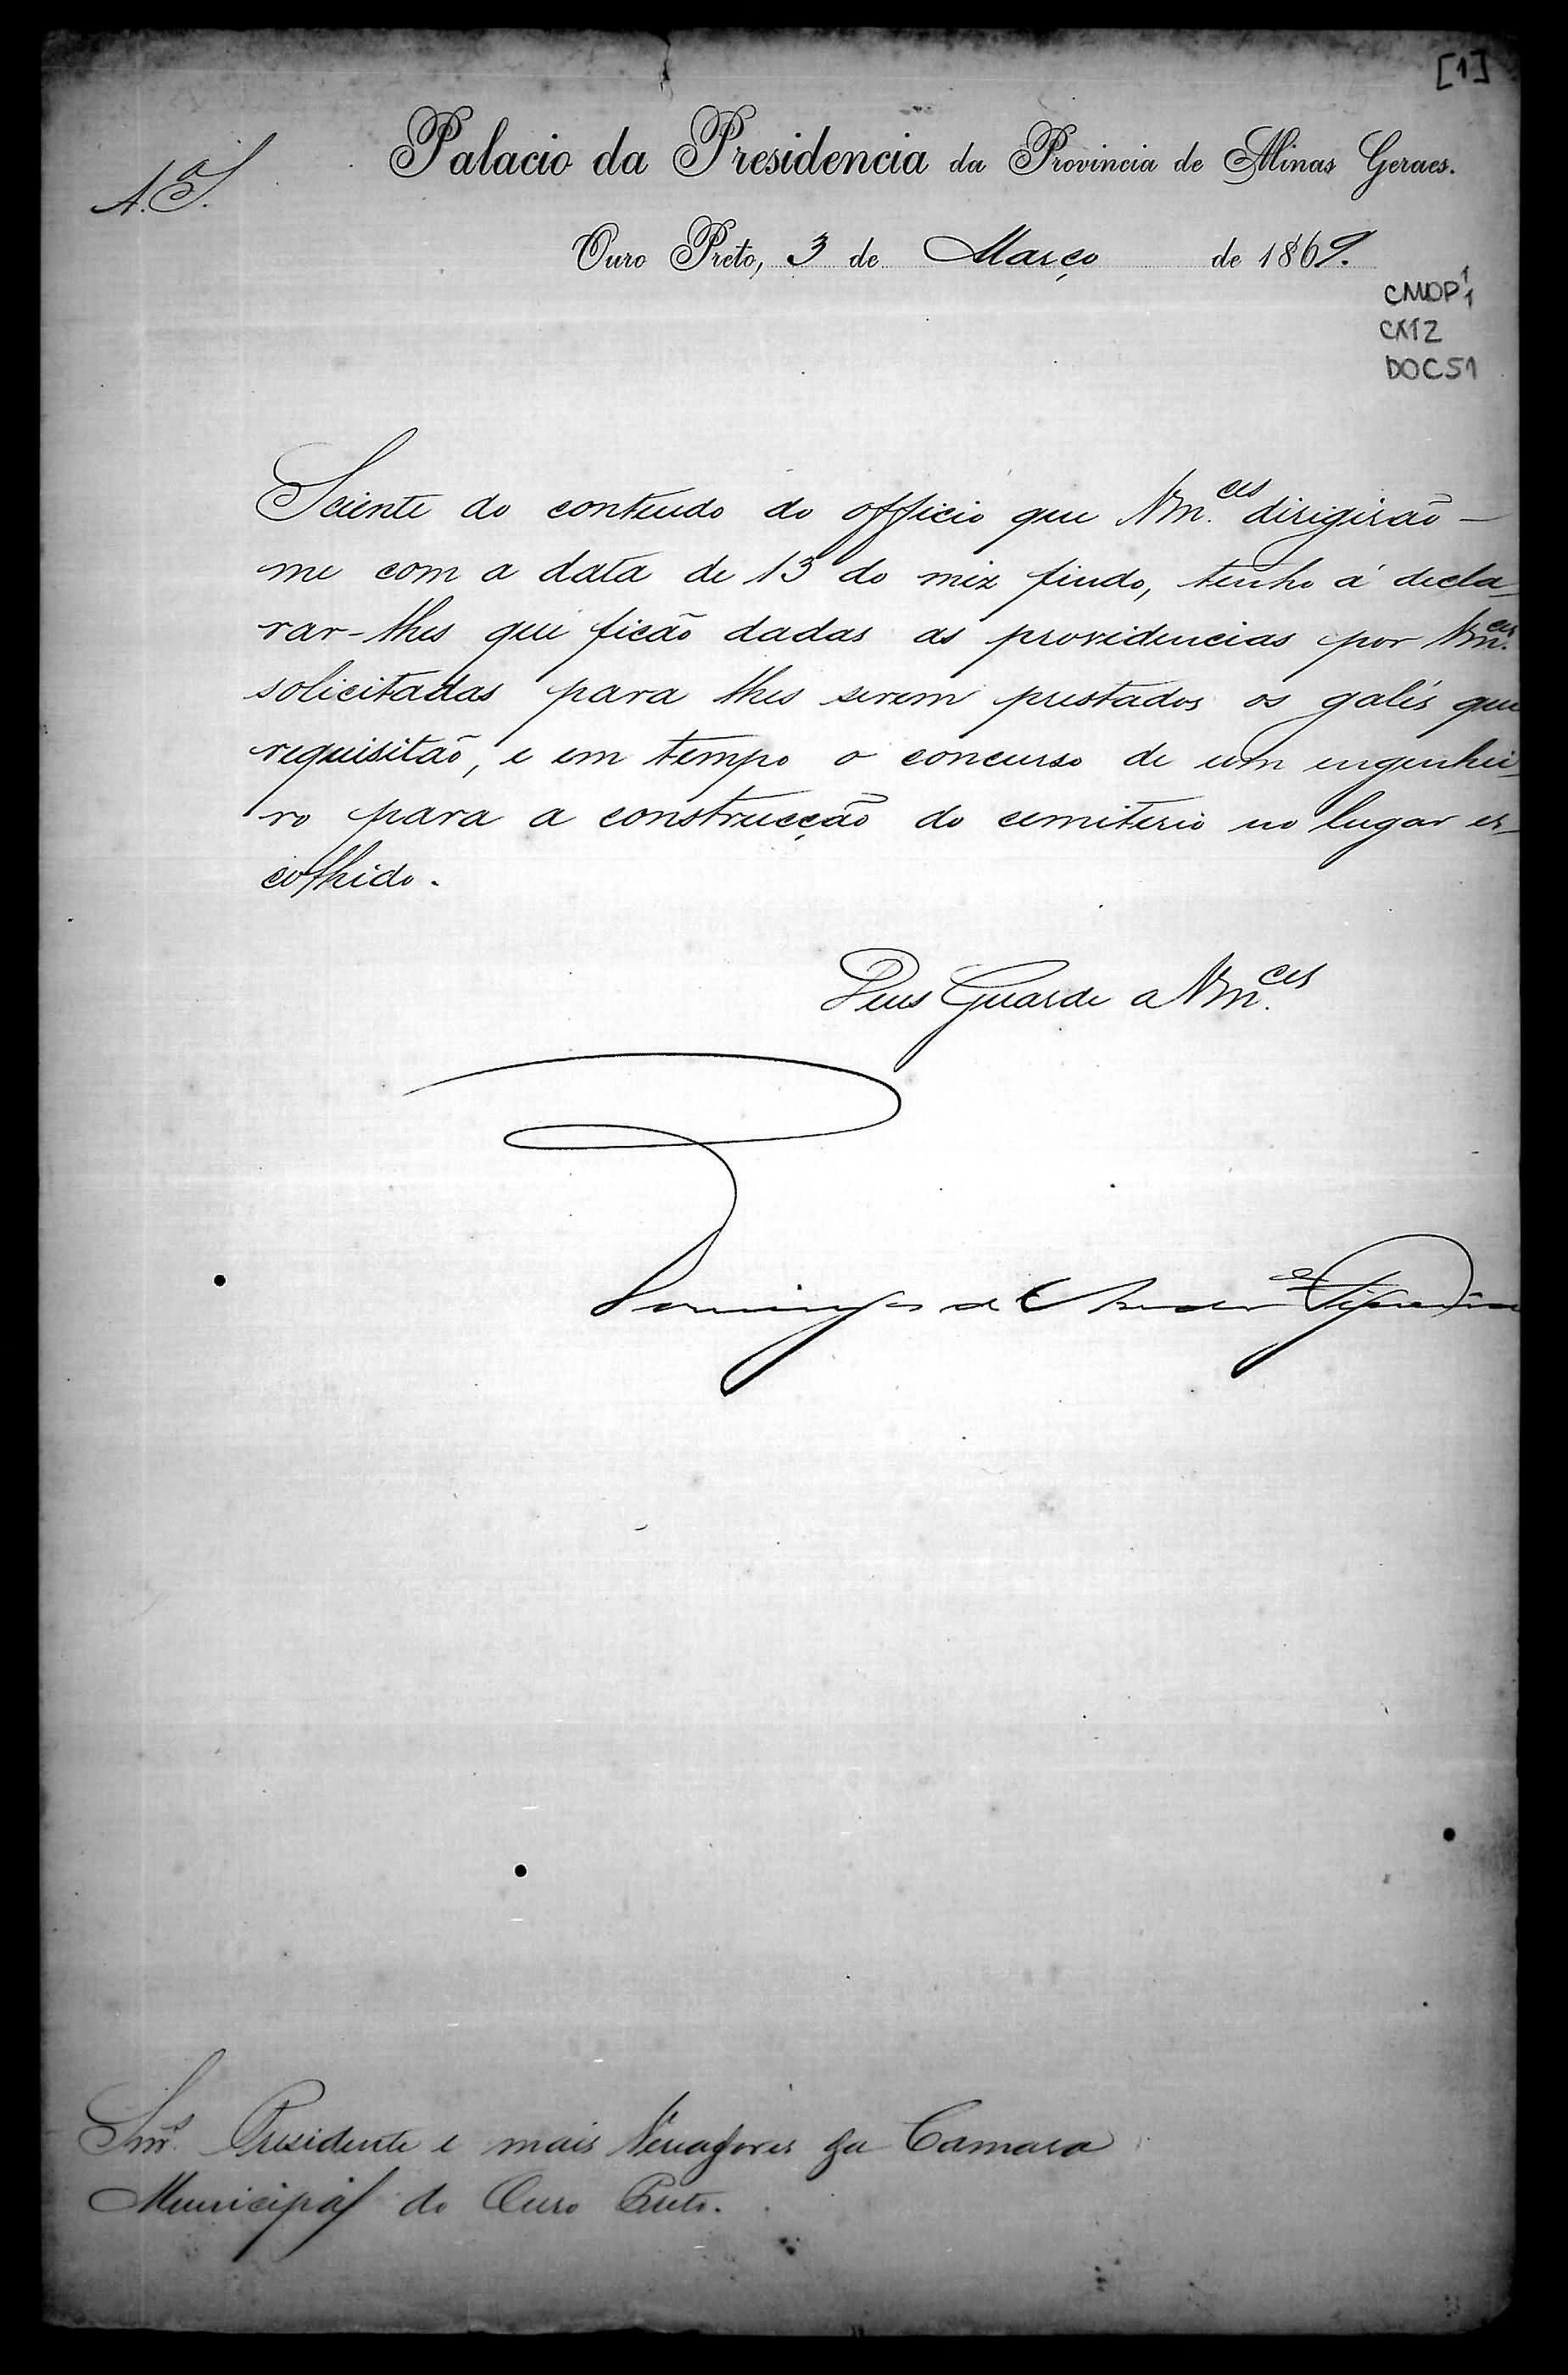 [1]
1.ª S.
Palacio da Presidencia da Provincia de Minas Geraes.
Ouro Preto, 3 de Março de 1869.
CMOP 1/1
CX12
DOC51
Sciente do conteudo do officio que Vm.ces dirigirão-
me com a data de 13 do mez findo, tenho á decla-
rar-lhes que ficão dadas as providencias por Vm.ces
solicitadas para lhes serem prestados os galés que
requisitão, e em tempo o concurso de um engenhei-
ro para a construcção do cemiterio no lugar es-
colhido.
Deus Guarde a Vm.ces
Domingos de Andrade Figueira
Snr.s Presidente e mais Vereadores da Camara
Municipal do Ouro Preto.